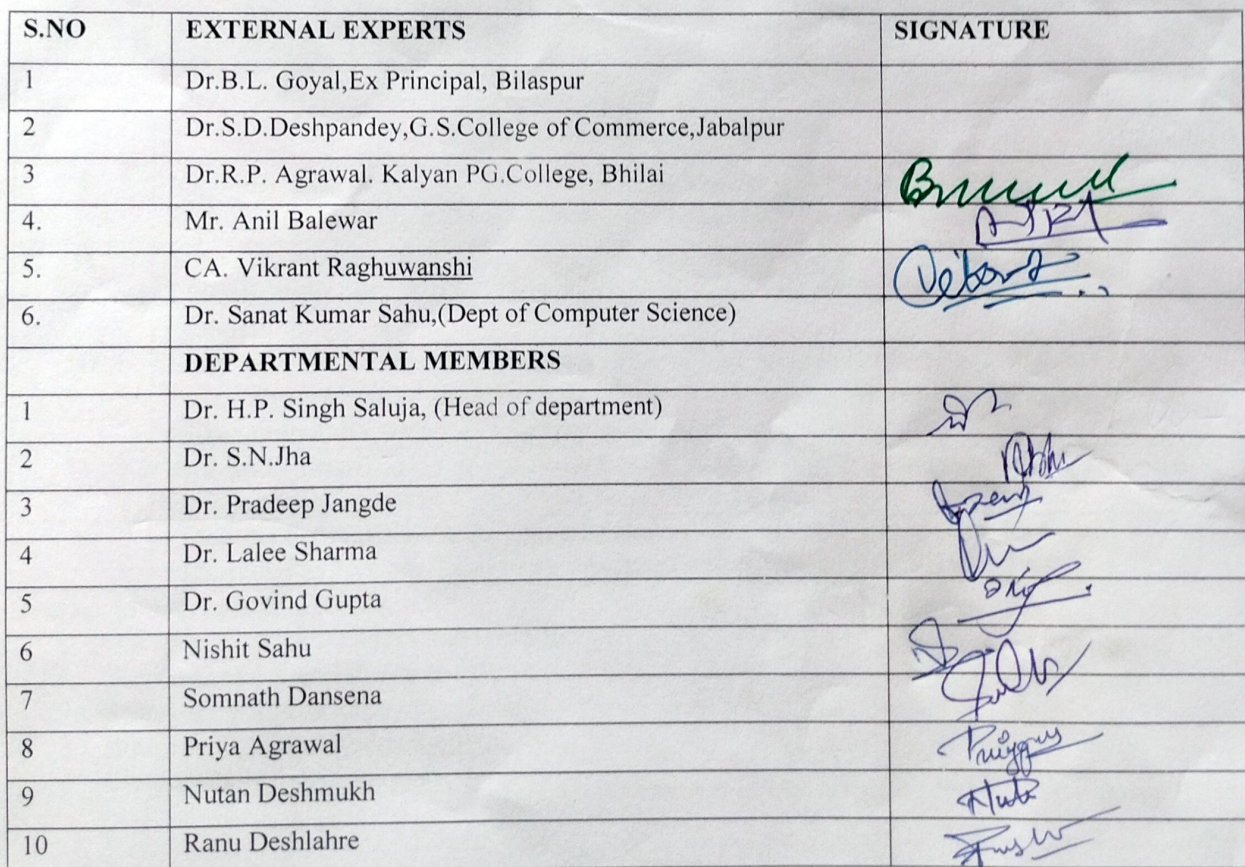 S.NO EXTERNAL EXPERTS SIGNATURE
1 Dr.B.L. Goyal,Ex Principal, Bilaspur
2 Dr.S.D.Deshpandey,G.S.College of Commerce,Jabalpur
3 Dr.R.P. Agrawal. Kalyan PG.College, Bhilai
4. Mr. Anil Balewar
5. CA. Vikrant Raghuwanshi
6. Dr. Sanat Kumar Sahu,(Dept of Computer Science)
DEPARTMENTAL MEMBERS
1 Dr. H.P. Singh Saluja, (Head of department)
2 Dr. S.N.Jha
3 Dr. Pradeep Jangde
4 Dr. Lalee Sharma
5 Dr. Govind Gupta
6 Nishit Sahu
7 Somnath Dansena
8 Priya Agrawal
9 Nutan Deshmukh
10 Ranu Deshlahre